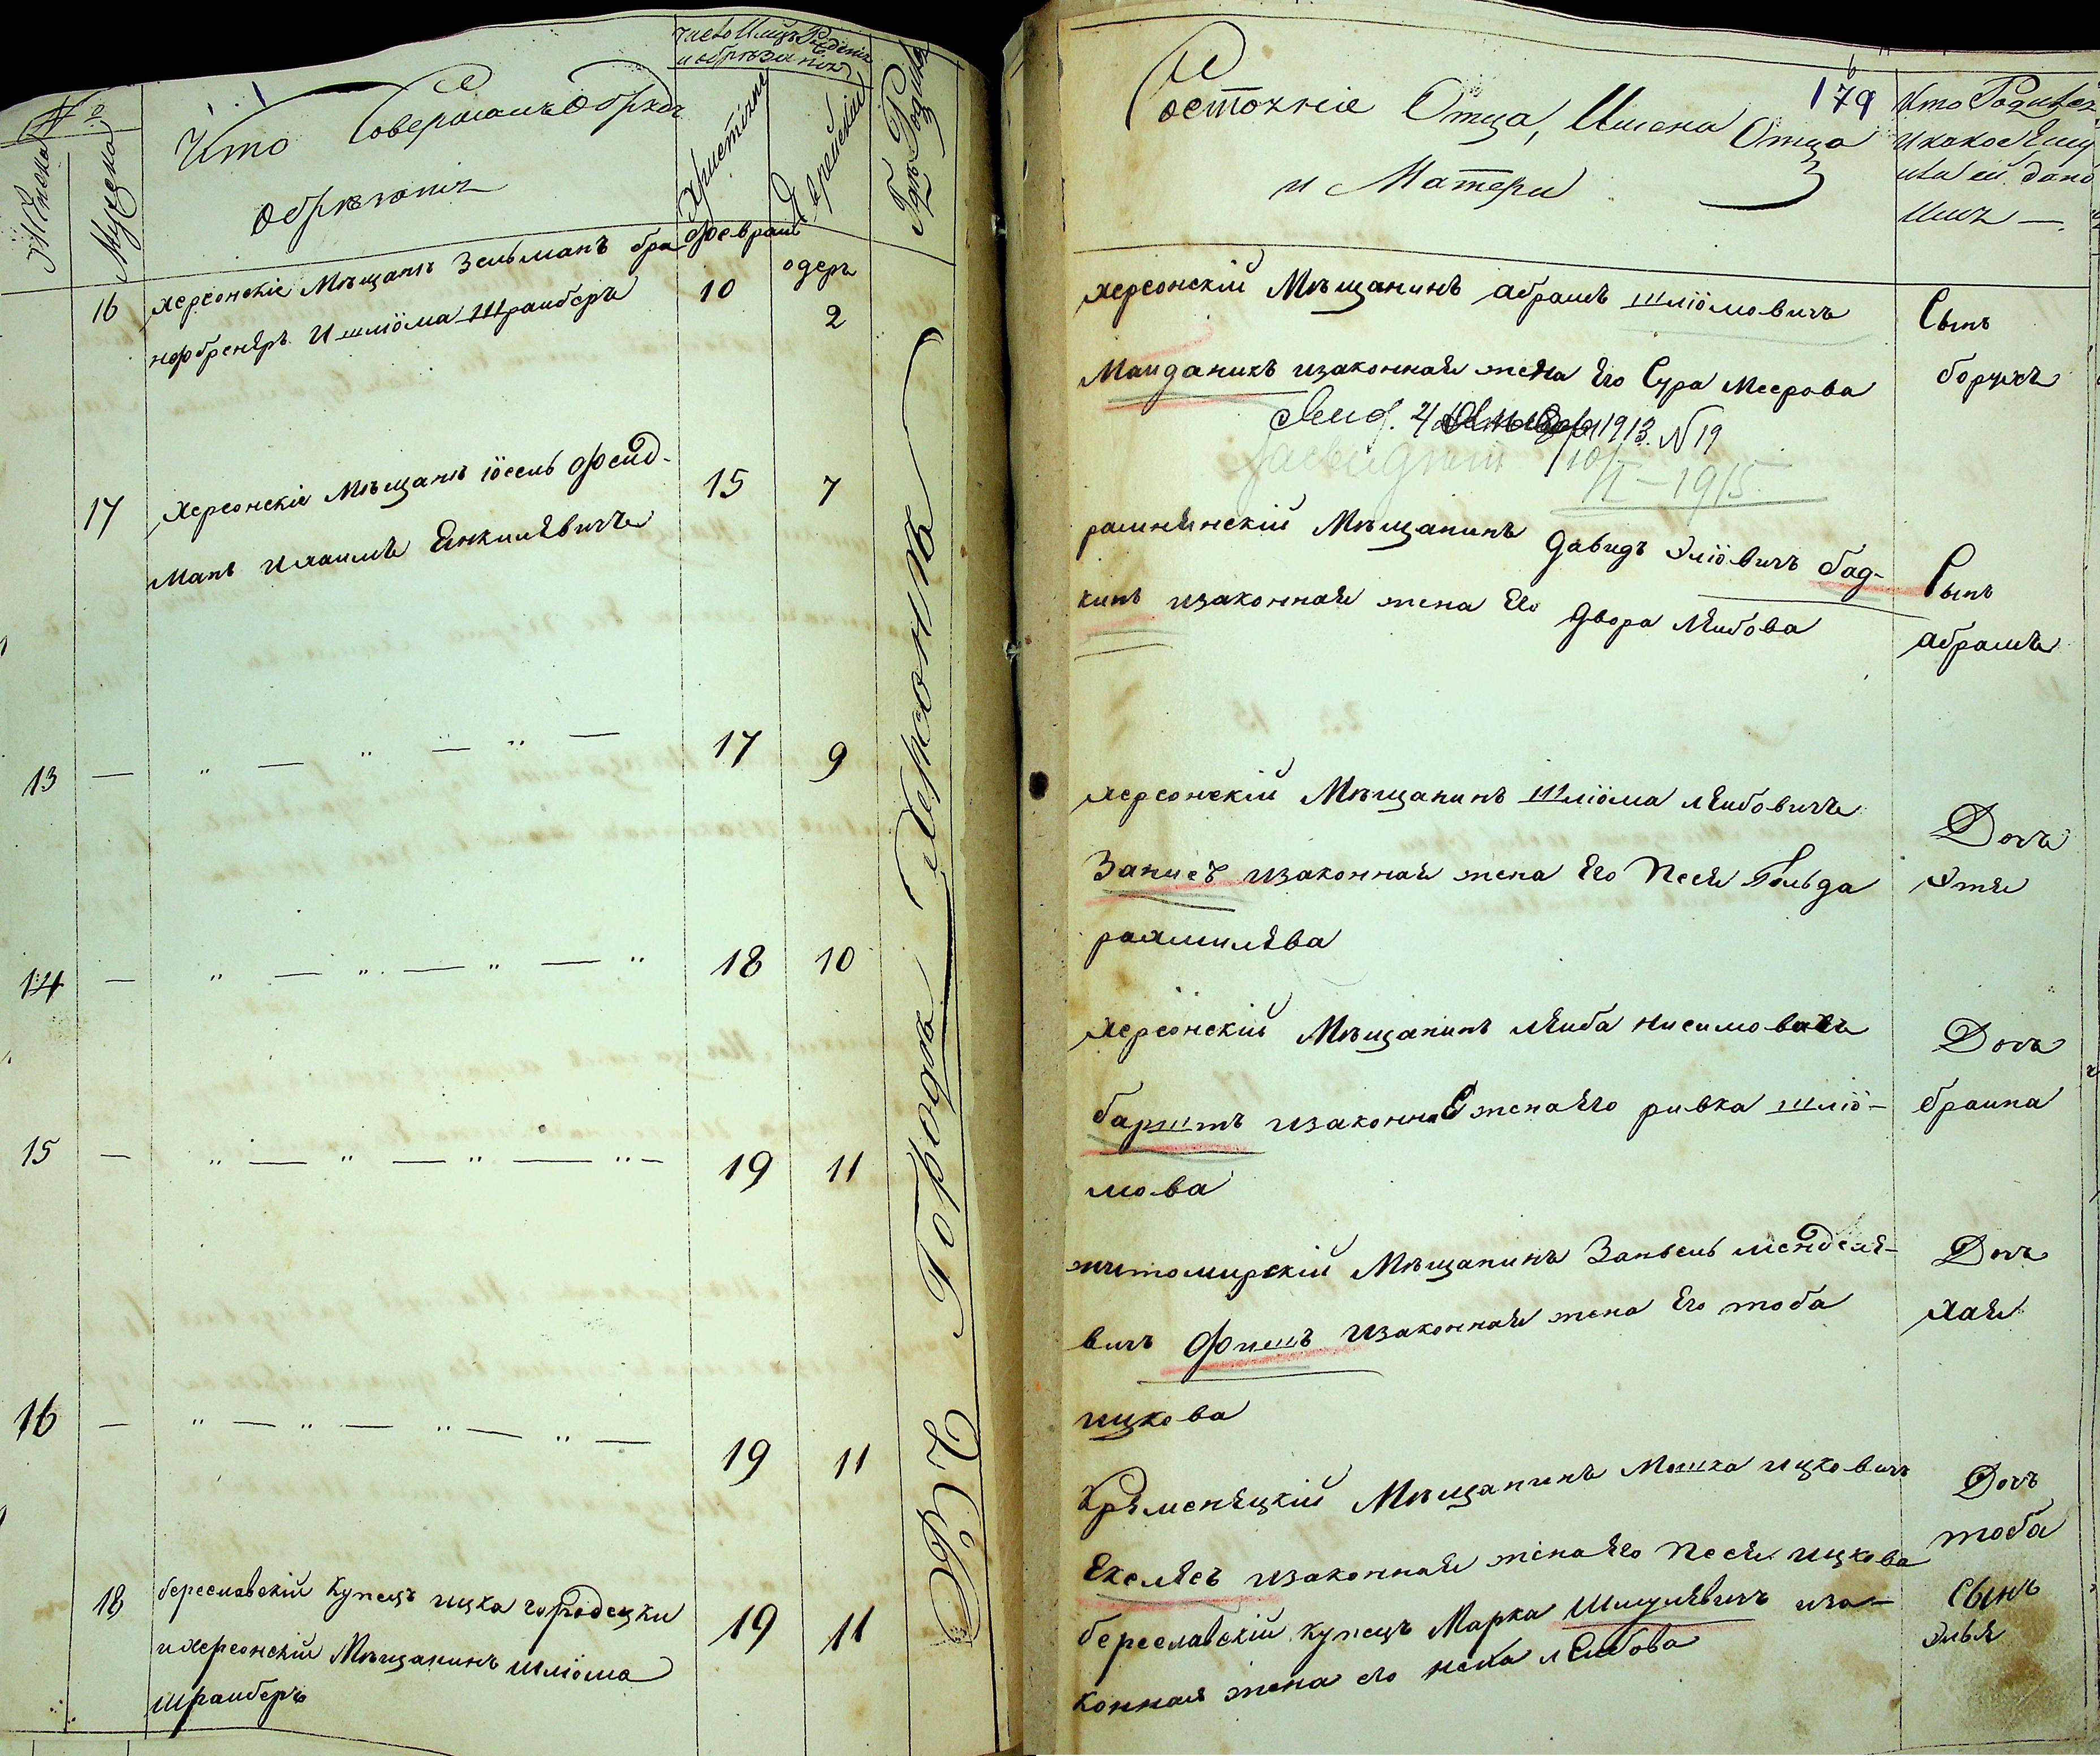 №
Женска
Мужеска
Кто Совершалъ обрядъ
обрезанія
число и мѣцъ Рожденія
и обрѣзанія
Христіанс
Еврейскій
Гдѣ Родился
16
херсонскіе Мѣщане Зельманъ
и шлйома Штрамберъ
февраль
10
адеръ
2
17
херсонскіе Мѣщане йосель фейд-
манъ и хаимъ Янкилевичъ
15
7
13
17
9
14
18
10
15
19
11
16
19
11
18
береславскій Купецъ ицка городецки
и херсонскій Мѣщанинъ шлйома
штрамберъ
19
11
ВЪ Городѣ Херсонѣ
Состояніе Отца, Имена Отца
и Матери
179
Кто Родился
и какое Ему
или ей дано
Имя
херсонскій Мѣщанинъ абрамъ шлйомовичъ
Майданикъ и законная жена Его Сура Меерова
1913. N 19
10/II - 1915
Сынъ
борухъ
Мѣщанинъ давидъ элйовичъ бад-
кинъ и законная жена Его двора Лейбова
Сынъ
абрамъ
херсонскій Мѣщанинъ шлйома лейбовичъ
Записъ и законная жена Его Песя Гольда
рахмилева
Дочь
Этя
херсонскій Мѣщанинъ лейба нисимовичъ
барштъ и законная жена Его ривка шлйо-
мова
Дочь
браина
житомирскій Мѣщанинъ Занвель менделе-
вичъ Фишъ и законная жена Его тоба
ицкова
Дочь
хая
Кременецкій Мѣщанинъ Мошка ицковичъ
Екелясъ и законная жена Его Песя ицкова
Дочь
тоба
береславскій купецъ Марка Шмулевичъ и за-
конная жена его неха лейбова
Сынъ
элья